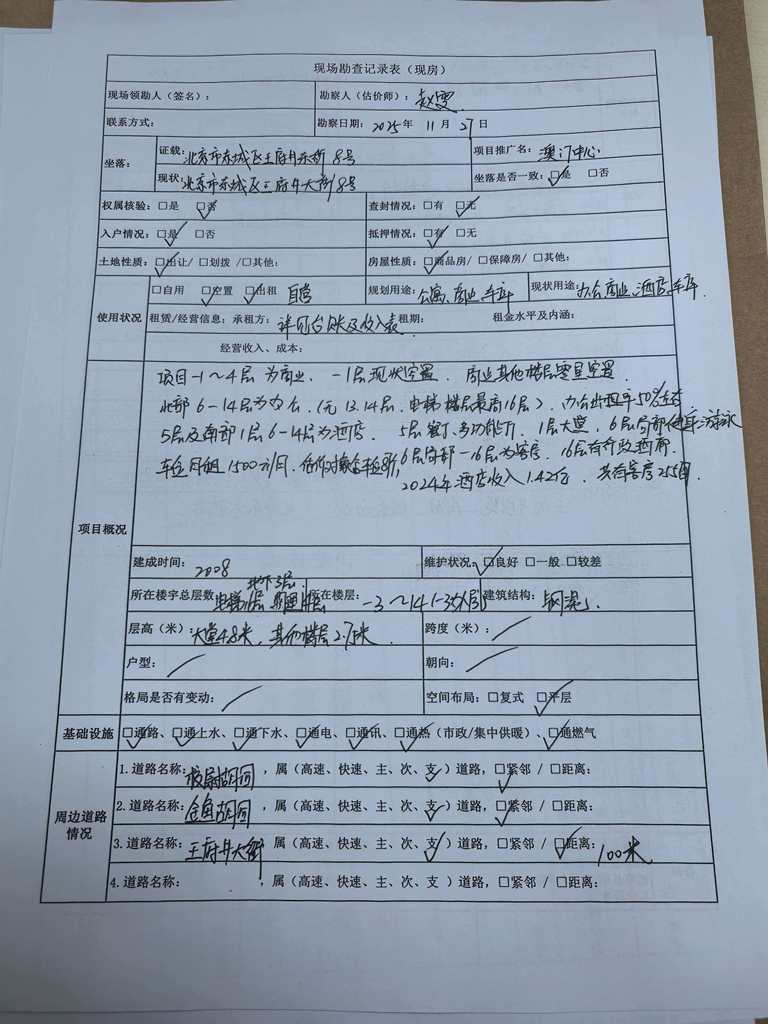 现场勘查记录表（现房）
现场领勘人（签名）： 勘察人（估价师）：赵雯
联系方式： 勘察日期：2025年 11月 27日
坐落： 证载：北京市东城区王府井东街8号 项目推广名：澳门中心
现状：北京市东城区王府井大街8号 坐落是否一致：☑是 □否
权属核验：□是 ☑否 查封情况：□有 ☑无
入户情况：☑是 □否 抵押情况：☑有 □无
土地性质：☑出让/□划拨/□其他： 房屋性质：☑商品房/□保障房/□其他：
使用状况 □自用 ☑空置 ☑出租 自营 规划用途：公寓、商业、车库 现状用途：办公、商业、酒店、车库.
租赁/经营信息：承租方：详见台账及收入表 租期： 租金水平及内涵：
经营收入、成本：
项目概况
项目-1～4层为商业、-1层现状空置、商业其他楼层零星空置
北部6-14层为办公（无13.14层，电梯楼层最高16层），办公出租率50%左右
5层及南部1层6-14层为酒店. 5层餐厅、多功能厅，1层大堂，6层局部健身、游泳
车位月租1500元/月. 6层局部-16层为客房. 16层有行政酒廊.
2024年酒店收入1.42亿. 共有客房255间
建成时间：2008 维护状况：☑良好 □一般 □较差
地下3层.
所在楼宇总层数： 所在楼层：-3～14 建筑结构：钢混
层高（米）：大堂4.8米，其他楼层2.75米. 跨度（米）：/
户型：/ 朝向：/
格局是否有变动：/ 空间布局：□复式 ☑平层
基础设施 ☑通路、☑通上水、☑通下水、☑通电、☑通讯、☑通热（市政/集中供暖）、☑通燃气
周边道路情况
1.道路名称：校尉胡同，属（高速、快速、主、次、支✓）道路，☑紧邻 / □距离：
2.道路名称：金鱼胡同，属（高速、快速、主、次、支✓）道路，☑紧邻 / □距离：
3.道路名称：王府井大街，属（高速、快速、主、次、支✓）道路，□紧邻 / ☑距离：100米
4.道路名称： ，属（高速、快速、主、次、支）道路，□紧邻 / □距离：